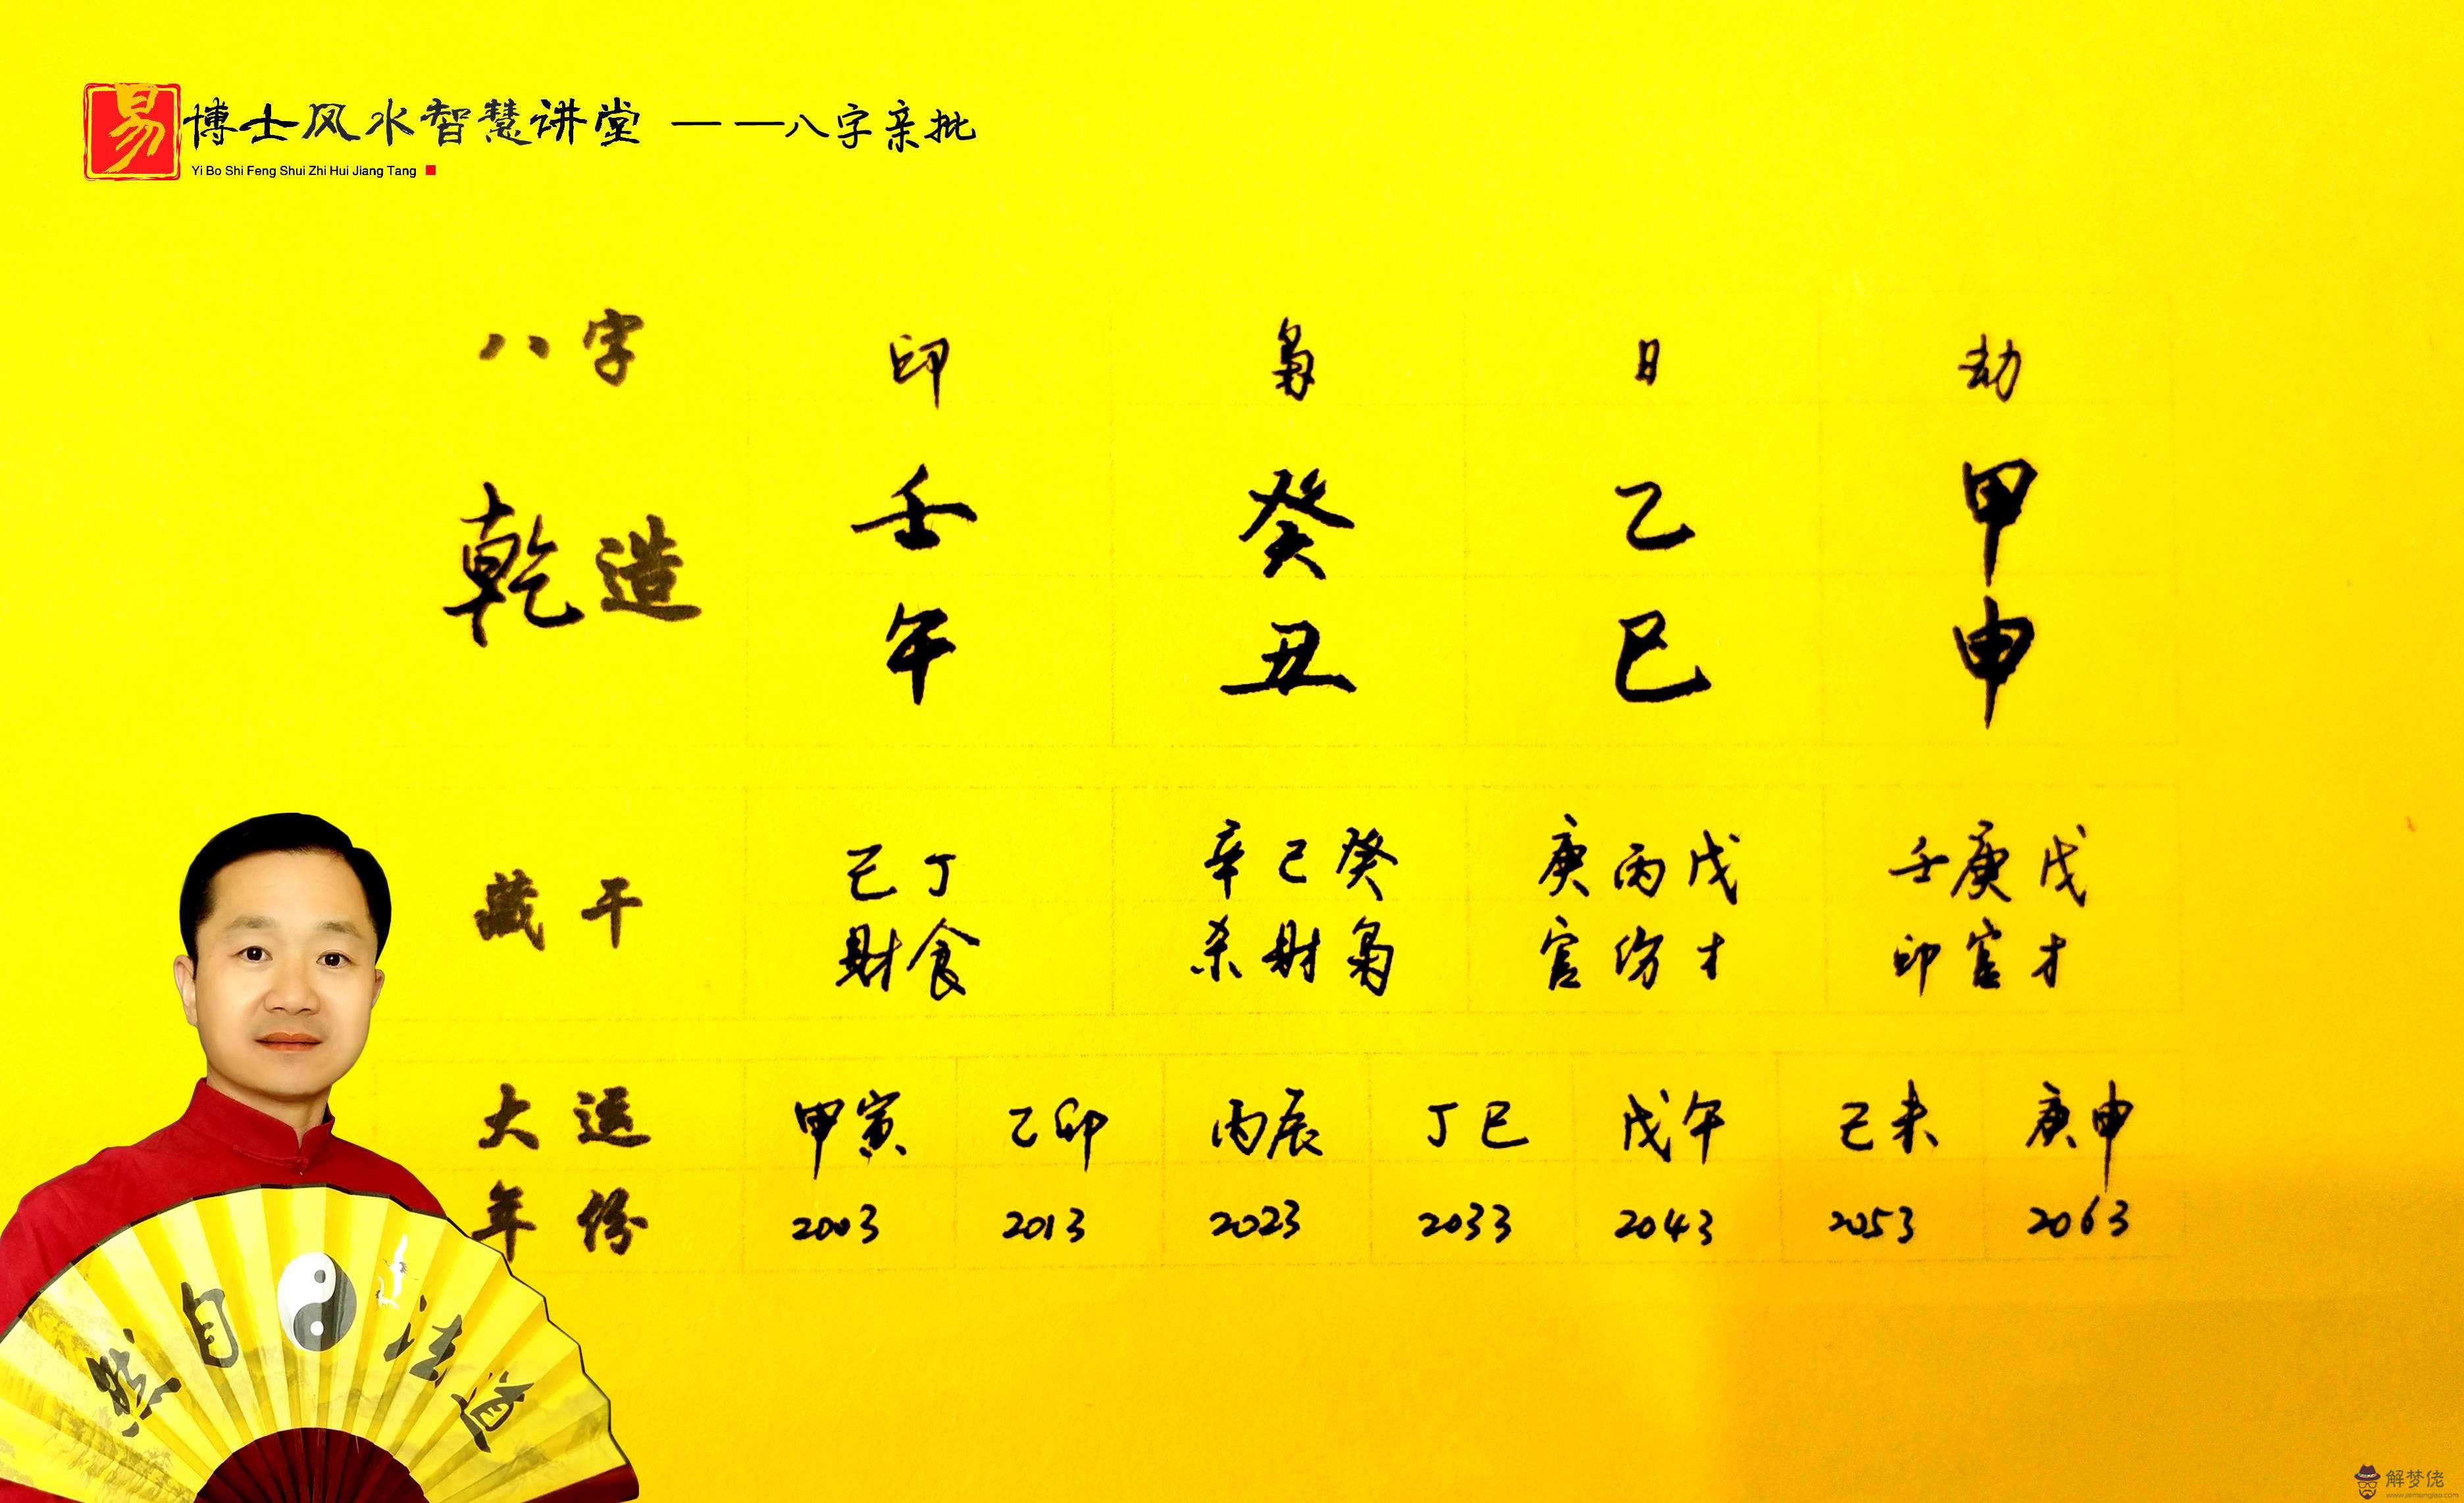 易博士风水智慧讲堂 ——八字亲批
Yi Bo Shi Feng Shui Zhi Hui Jiang Tang
八字 印 枭 日 劫
乾造 壬 癸 乙 甲
午 丑 巳 申
藏干 己丁 辛己癸 庚丙戊 壬庚戊
财食 杀财枭 官伤才 印官才
大运 甲寅 乙卯 丙辰 丁巳 戊午 己未 庚申
年份 2003 2013 2023 2033 2043 2053 2063
然自法道
解梦佬
www.jiemenglao.com